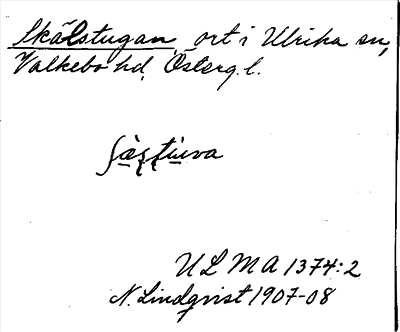 Skälstugan, ort i Ulrika sn,
Valkebo hd, Österg. l.
ʃæsturva
ULMA 1374:2
N. Lindqvist 1907-08